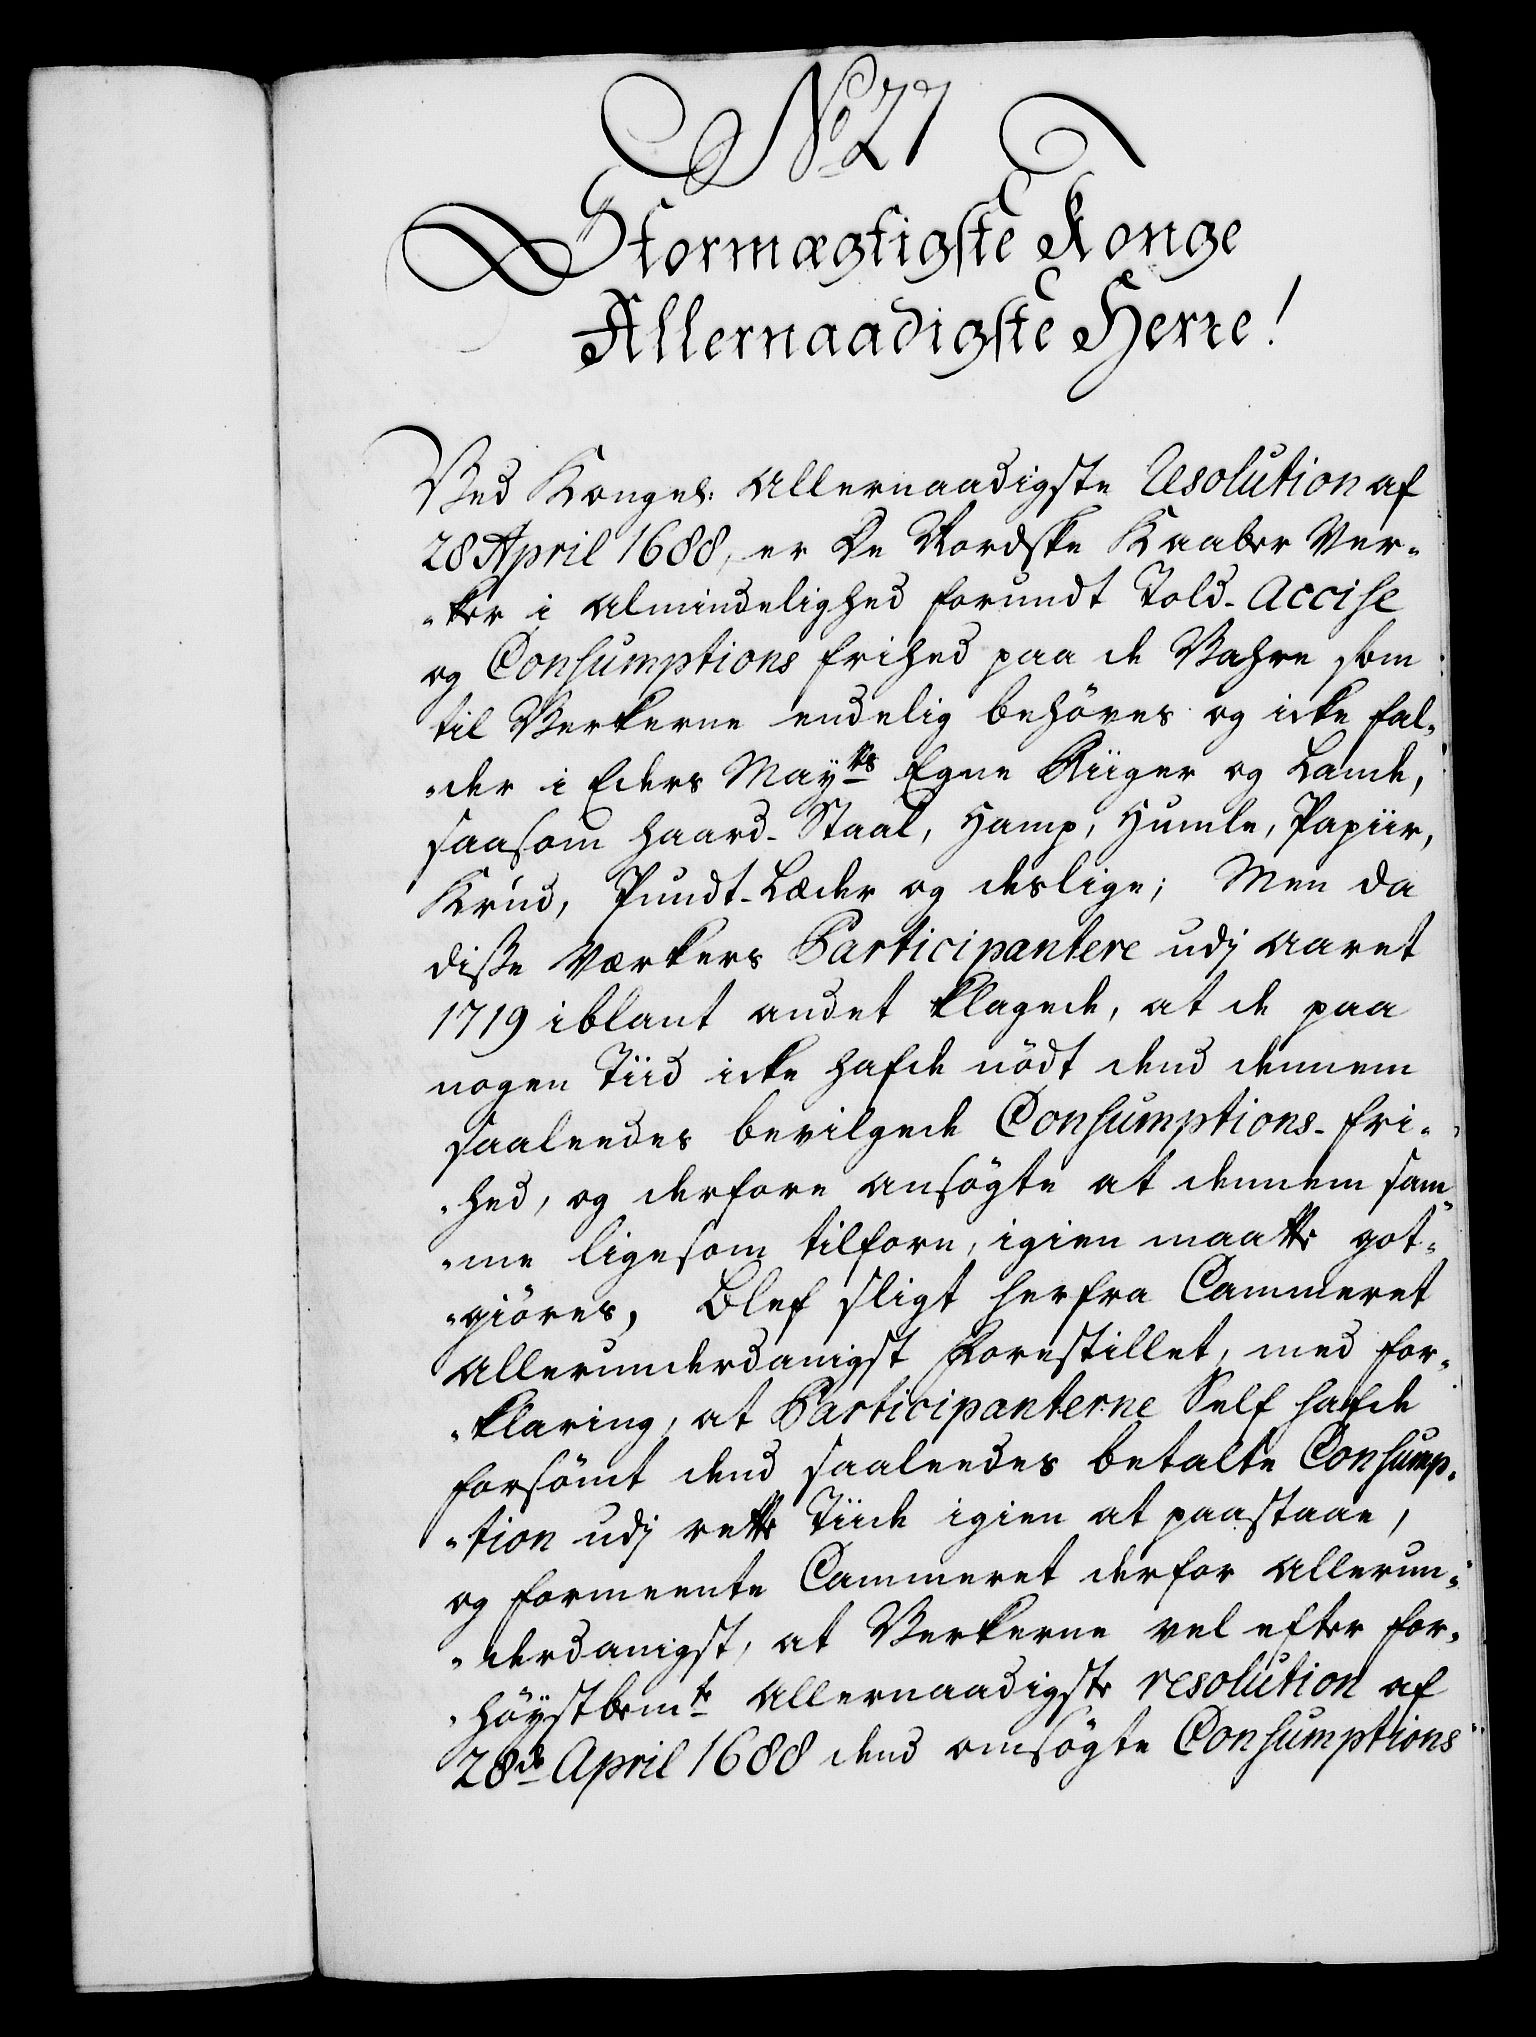 No 27
Stormægtigste Konge
Allernaadigste Herre!
Ved Kongel: Allernaadigste Resolution af
28 April 1688, er De Nordske Kaaber Ver-
-ker i Almindelighed forundt Told- Accise
og Consumptions frihed paa de Vahre som
til Verkerne endelig behöves og icke fal-
-der i Eders Mayts Egne Riiger og Lande,
saasom haard-Staal, Hamp, Humle, Papiir,
Krud, Pundt-Læder og deslige; Men da
disse Værkers Participantere udj Aaret
1719 iblant andet klagede, at de paa
nogen Tiid icke hafde nödt dend dennem
saaleedes bevilgede Consumptions-fri-
-hed, og derfore ansögte at dennem sam-
-me ligesom tilforn, igien maatte got-
-giöres, Blef sligt herfra Cammeret
Allerunderdanigst Forestillet, med for-
-klaring, at Participanterne Self hafde
forsömt dend saaleedes betalte Consump-
-tion udj rette Tiide igien at paastaae,
og formeente Cammeret derfor Allerun-
-derdanigst, at Verkerne vel efter for-
-höystbemte Allernaadigste resolution af
28de April 1688 dend omsögte Consumptions